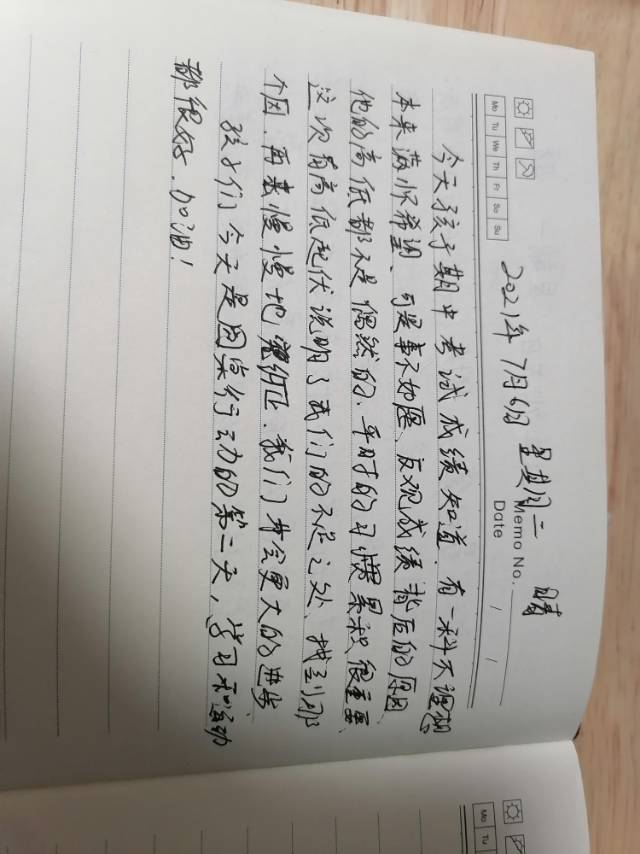 Mo Tu We Th Fr Sa Su
Memo No.
Date / /
2021年 7月6日 星期二 晴
今天孩子期中考试成绩知道.有一科不理想
本来满怀希望、可是事不如愿、反观成绩背后的原因
他的高低都不是偶然的、平时的习惯累积很重要、
这次有高低起伏说明了我们的不足之处、找到那
个因.再去慢慢地 纠正.我们才会更大的进步
孩子们今天是因果行动的第二天,学习和运动
都很好.加油!
Mo Tu